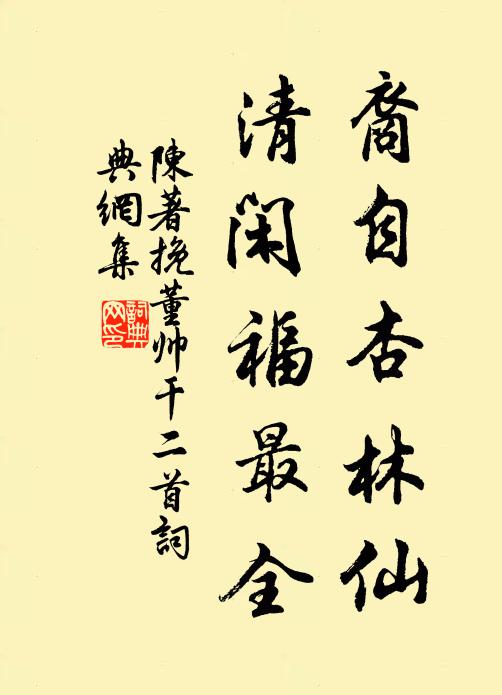 裔自杏林仙
清闲福最全
陳著挽董帅干二首詞
典網集
詞典网印